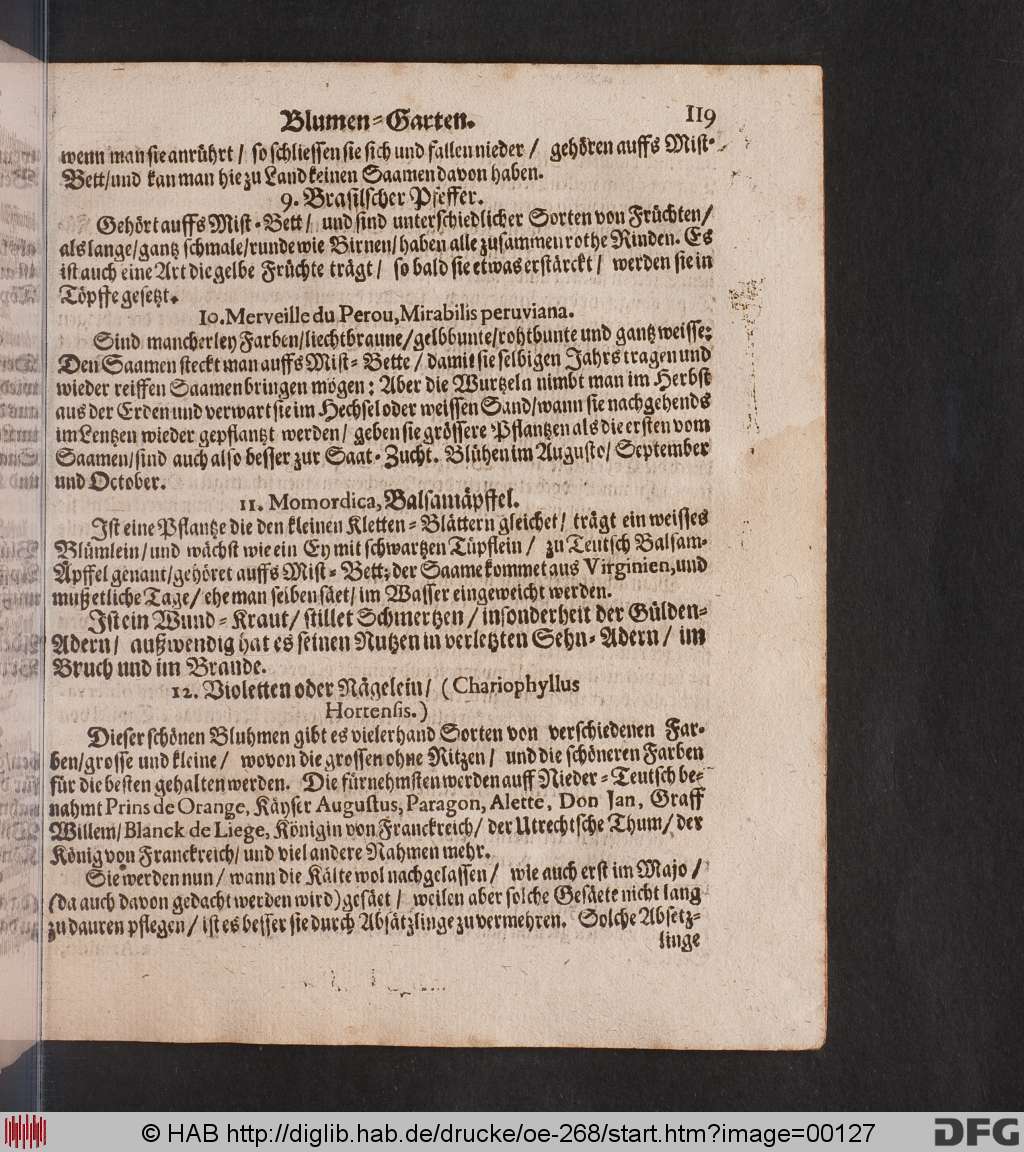 Blumen-Garten. 119
wenn man sie anrührt / so schliessen sie sich und fallen nieder / gehören auffs Mist-
Bett/und kan man hie zu Land keinen Saamen davon haben.
9. Brasilscher Pfeffer.
Gehört auffs Mist-Bett / und sind unterschiedlicher Sorten von Früchten/
als lange/gantz schmale/runde wie Birnen/haben alle zusammen rothe Rinden. Es
ist auch eine Art die gelbe Früchte trägt / so bald sie etwas erstärckt / werden sie in
Töpffe gesetzt.
10. Merveille du Perou, Mirabilis peruviana.
Sind mancherley Farben/liechtbraune/gelbbunte/rohtbunte und gantz weisse:
Den Saamen steckt man auffs Mist-Bette / damit sie selbigen Jahrs tragen und
wieder reiffen Saamen bringen mögen: Aber die Wurtzeln nimbt man im Herbst
aus der Erden und verwart sie im Hechsel oder weissen Sand/wann sie nachgehends
im Lentzen wieder gepflantzt werden / geben sie grössere Pflantzen als die ersten vom
Saamen/sind auch also besser zur Saat-Zucht. Blühen im Augusto/ September
und October.
11. Momordica, Balsamäpffel.
Ist eine Pflantze die den kleinen Kletten-Blättern gleichet / trägt ein weisses
Blümlein/und wächst wie ein Ey mit schwartzen Tüpflein / zu Teutsch Balsam-
Äpffel genant/gehöret auffs Mist-Bett; der Saame kommet aus Virginien, und
muß etliche Tage / ehe man selben säet/ im Wasser eingeweicht werden.
Ist ein Wund-Kraut / stillet Schmertzen / insonderheit der Gülden-
Adern / außwendig hat es seinen Nutzen in verletzten Sehn-Adern / im
Bruch und im Brande.
12. Violetten oder Nägelein / (Chariophyllus
Hortensis.)
Dieser schönen Bluhmen gibt es vielerhand Sorten von verschiedenen Far-
ben/grosse und kleine / wovon die grossen ohne Ritzen / und die schöneren Farben
für die besten gehalten werden. Die fürnehmsten werden auff Nieder-Teutsch be-
nahmt Prins de Orange, Käyser Augustus, Paragon, Alette, Don Jan, Graff
Willem/ Blanck de Liege, Königin von Franckreich / der Utrechtsche Thum / der
König von Franckreich/ und viel andere Nahmen mehr.
Sie werden nun / wann die Kälte wol nachgelassen / wie auch erst im Majo /
(da auch davon gedacht werden wird) gesäet / weilen aber solche Gesäete nicht lang
zu dauren pflegen / ist es besser sie durch Absätzlinge zu vermehren. Solche Absetz-
linge
© HAB http://diglib.hab.de/drucke/oe-268/start.htm?image=00127
DFG